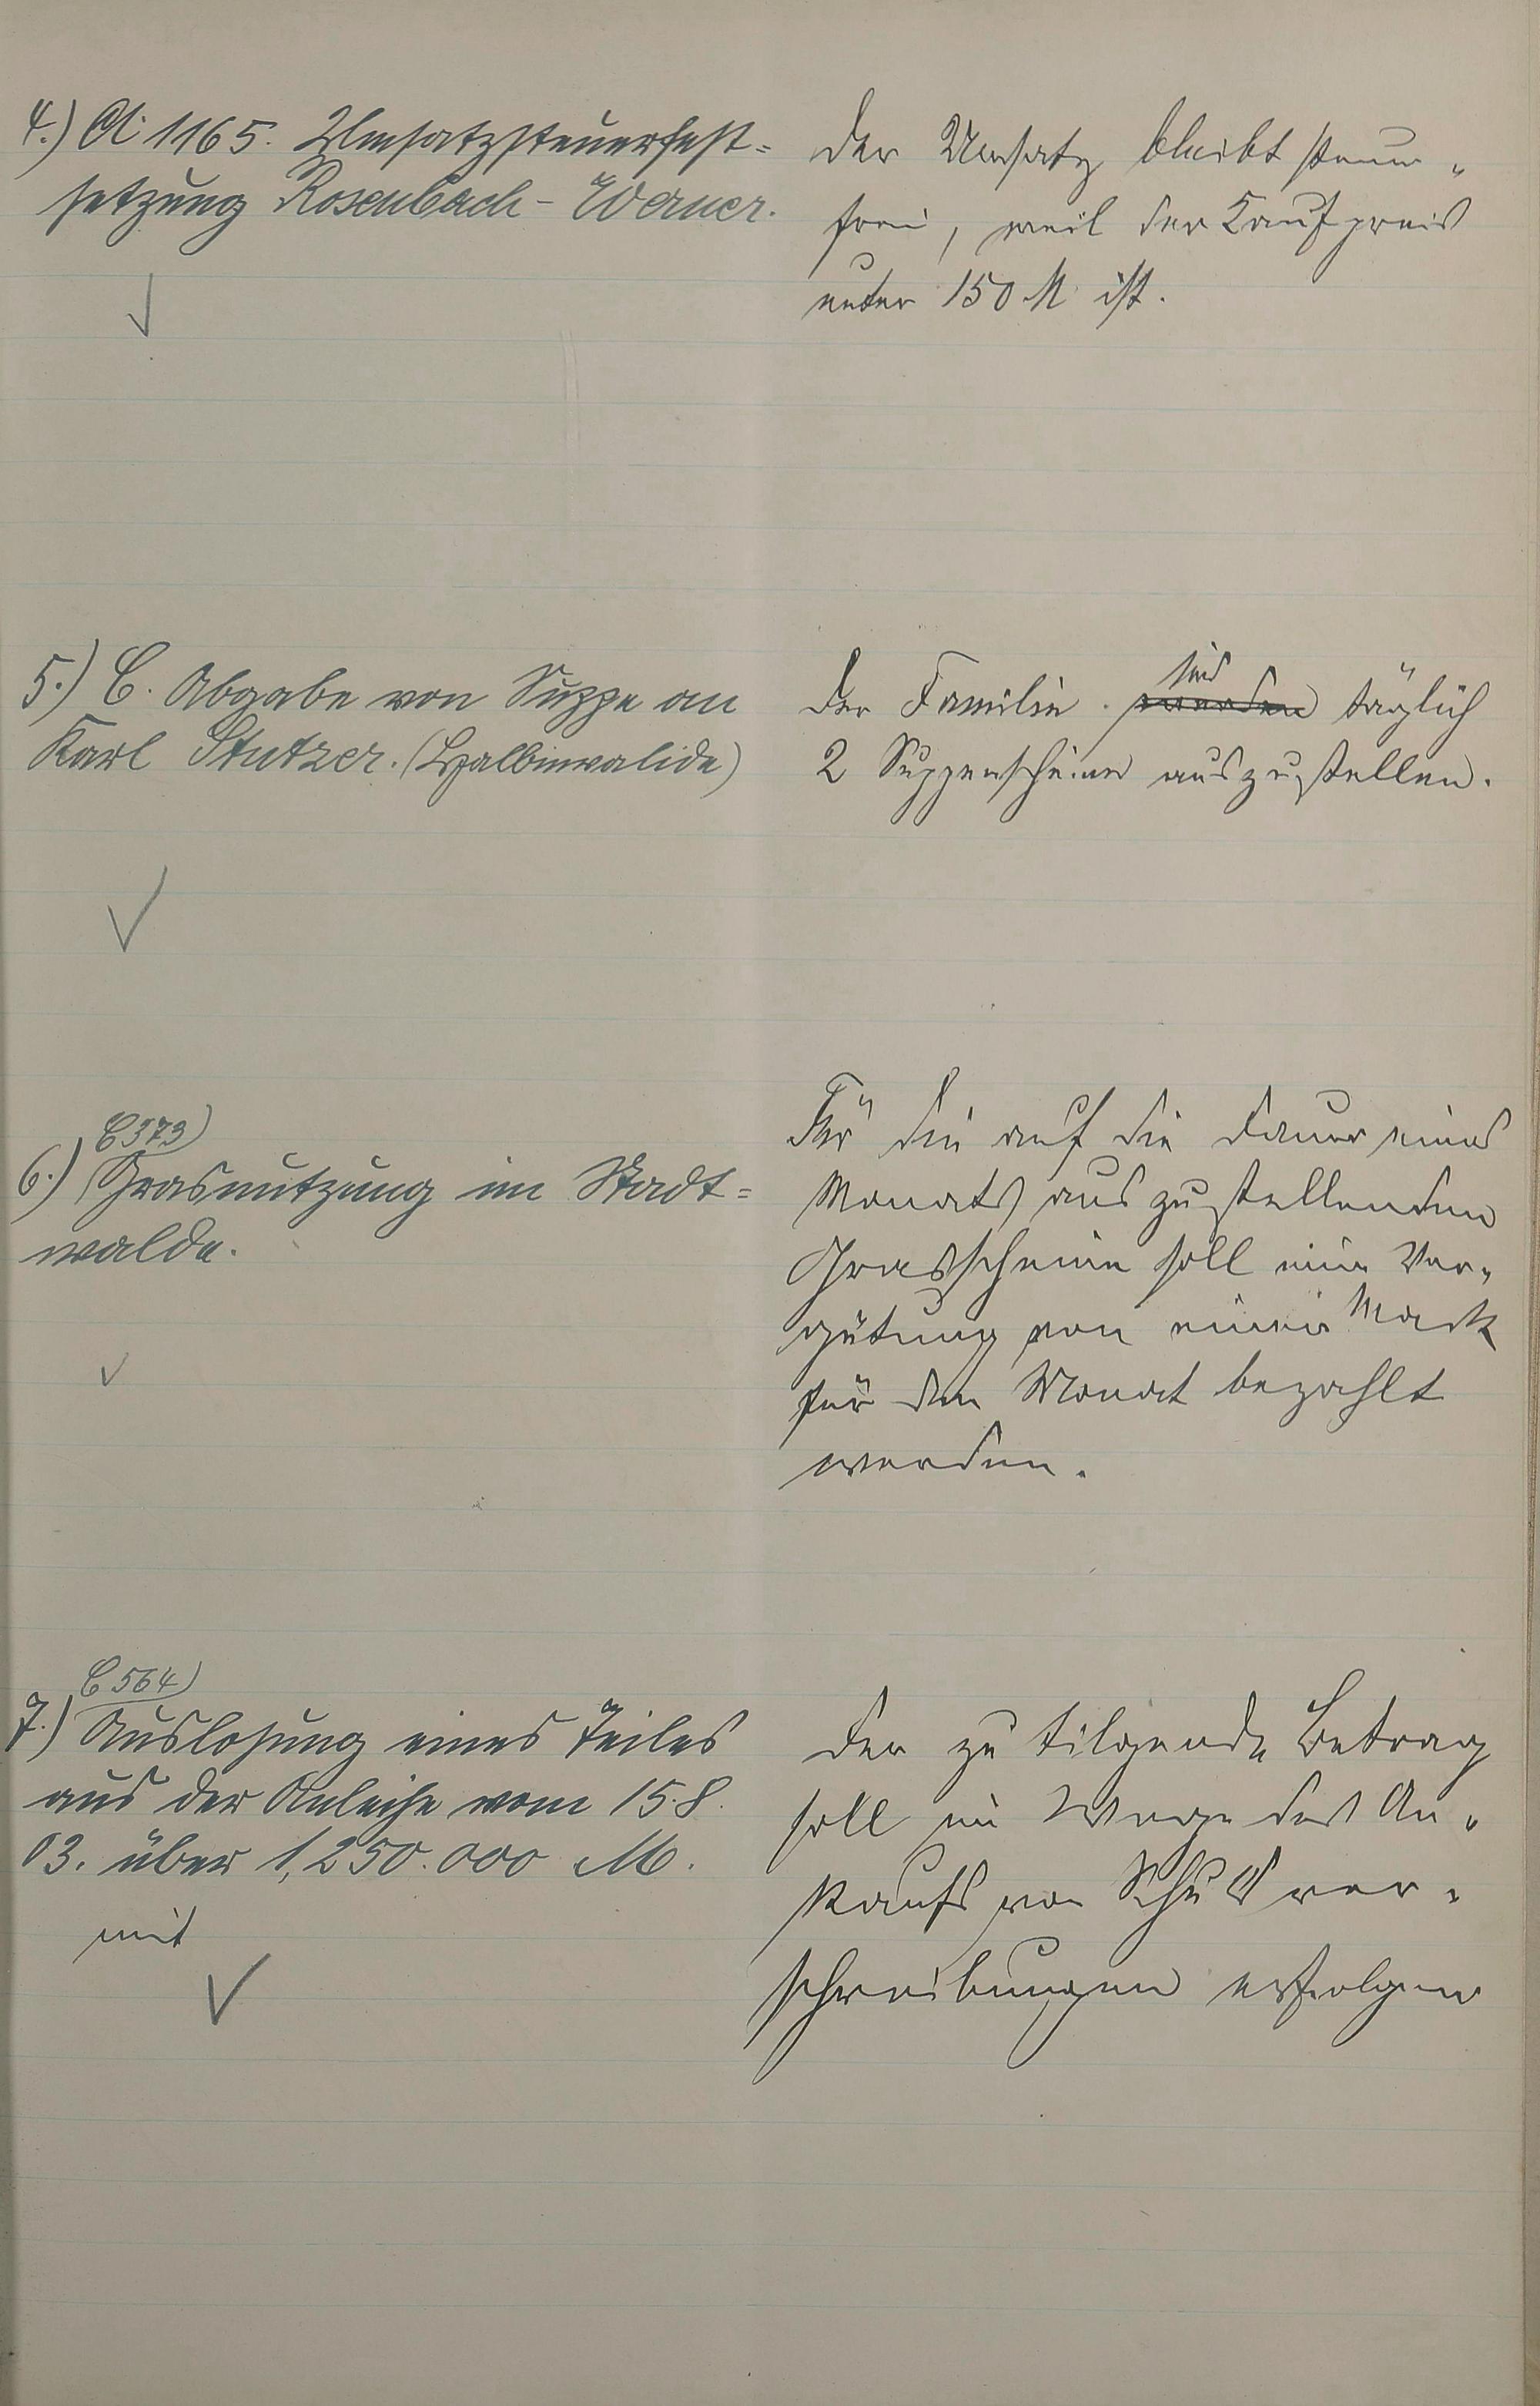 4.) A. 1165. Umsatzsteuerfest=
setzung Rosenbach - Werner.
Der Umsatz bleibt steuer-
frei, weil der Kaufpreis
unter 150 M ist.
5.) C. Abgabe von Suppe an
Karl Stutzer. (Halbinvalide)
sind
Der Familie werden täglich
2 Suppenscheine auszustellen.
C 373)
6.) Grasnutzung im Stadt=
walde.
Für die auf die Dauer eines
Monats auszustellenden
Grasscheine soll eine Ver-
gütung von einer Mark
für den Monat bezahlt
werden.
C 564)
7.) Auslosung eines Teiles
aus der Anleihe vom 15.8.
03. über 1,250.000 M.
mit
Der zu tilgende Betrag
soll im Wege des An-
kaufs von Schuldver-
schreibungen erfolgen